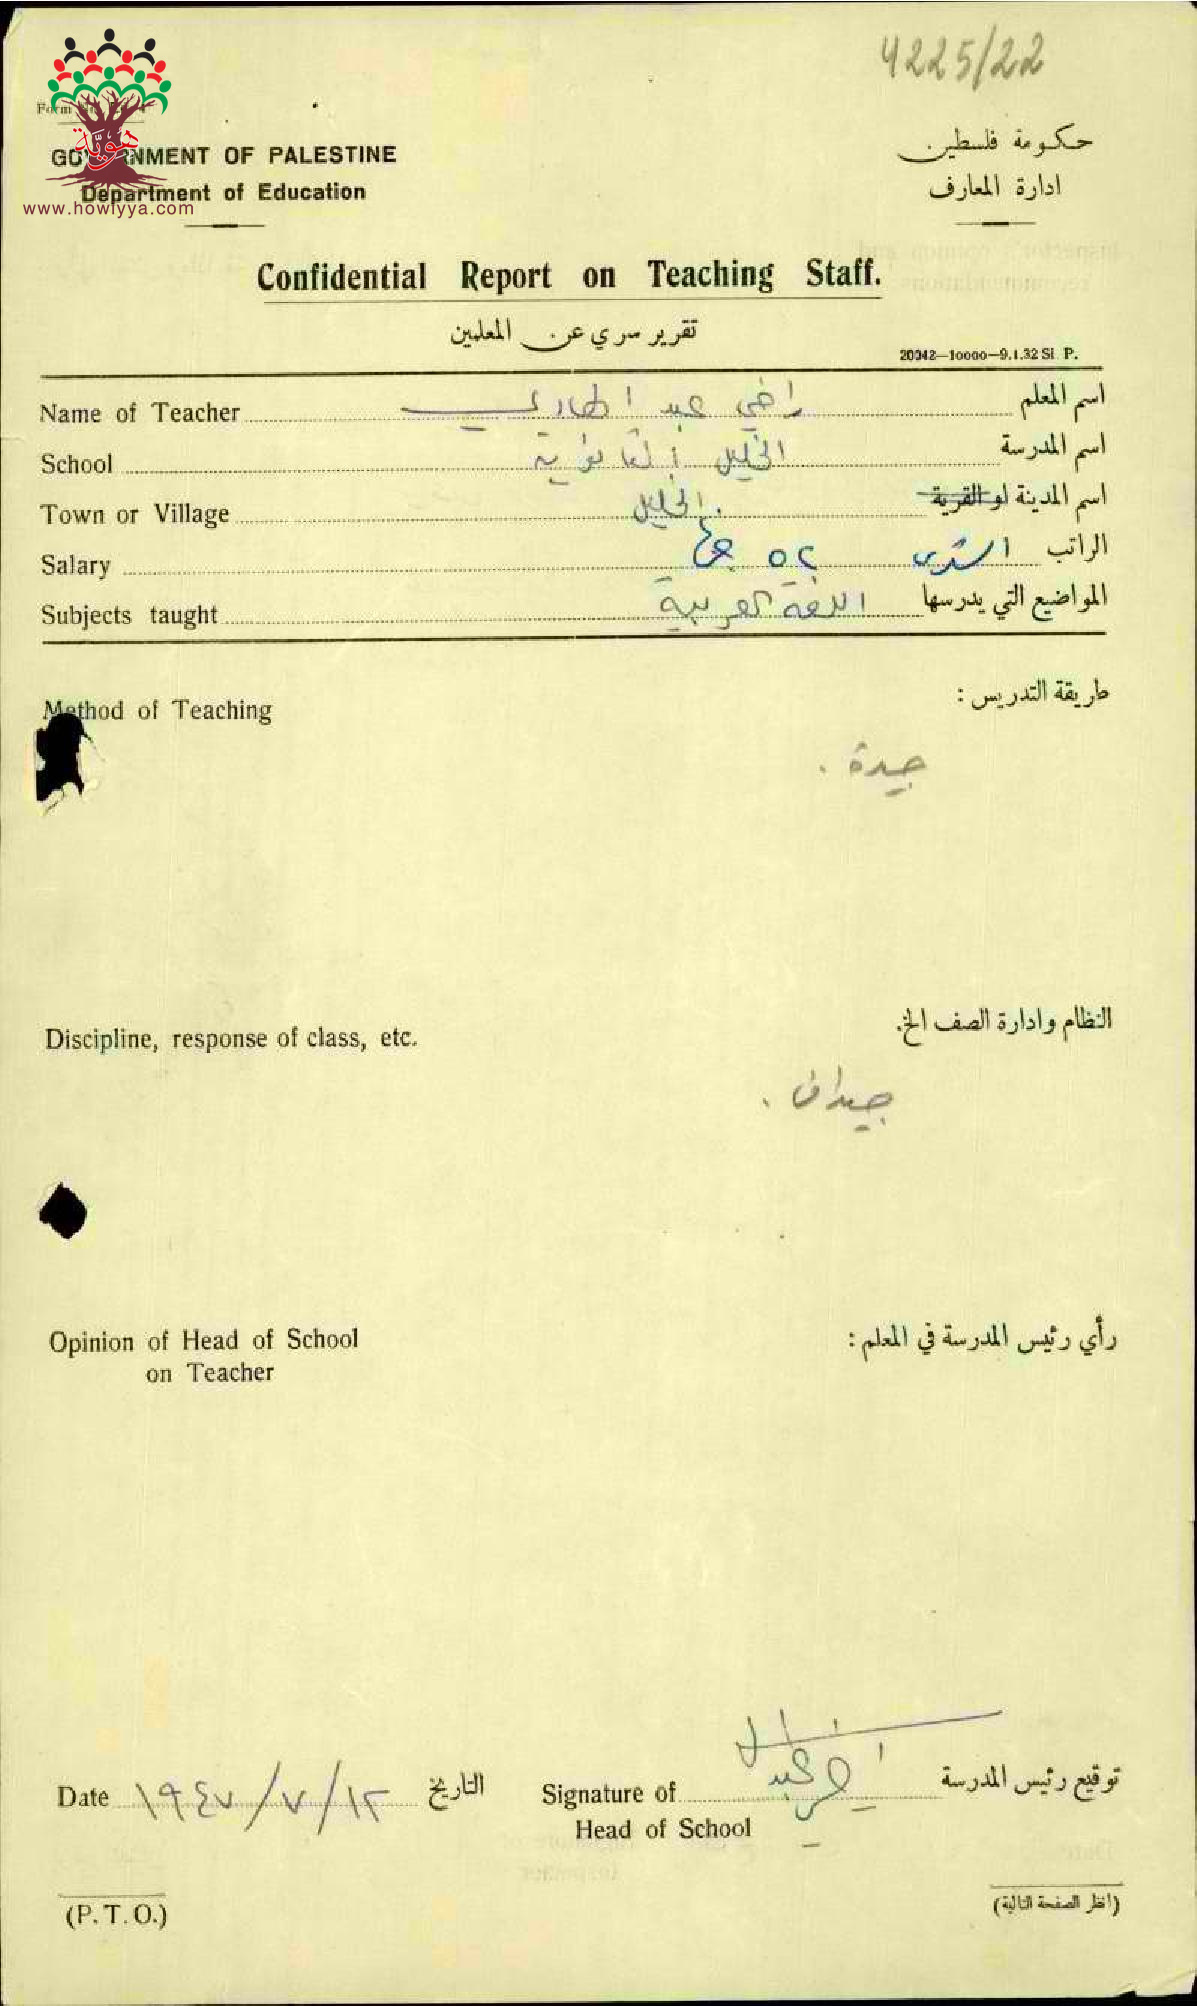 4225/22
Form No.
GOVERNMENT OF PALESTINE
Department of Education
www.howiyya.com
هويّة
حكومة فلسطين
ادارة المعارف
Confidential Report on Teaching Staff.
تقرير سري عن المعلمين
20342—10000—9.1.32 SI. P.
Name of Teacher راضي عبد الهادي اسم المعلم
School الخليل الثانوية اسم المدرسة
Town or Village الخليل اسم المدينة او القرية
Salary ٥٢ الراتب
Subjects taught اللغة العربية المواضيع التي يدرسها
Method of Teaching طريقة التدريس :
جيدة .
Discipline, response of class, etc. النظام وادارة الصف الخ.
جيدان .
Opinion of Head of School رأي رئيس المدرسة في المعلم :
on Teacher
Date ١٩٤٧/٧/١٢ التاريخ
Signature of توقيع رئيس المدرسة
Head of School
(P. T. O.)
(انظر الصفحة التالية)